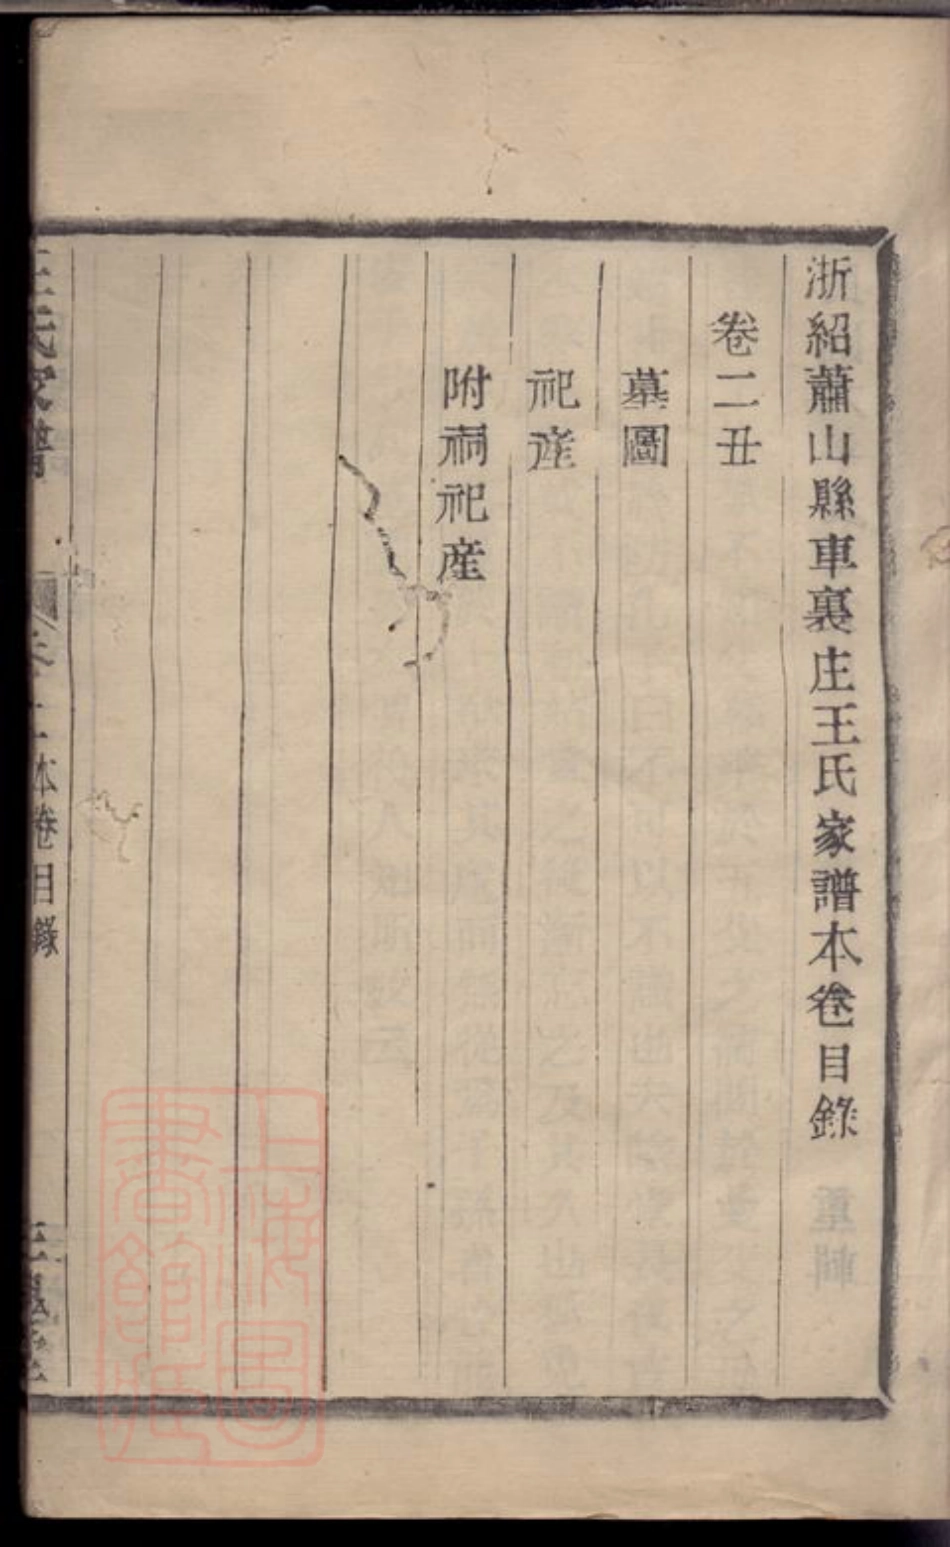 浙紹蕭山縣車裏庄王氏家譜本卷目錄
卷二丑
墓圖
祀產
附祠祀產
本卷目錄
上海圖
書館藏